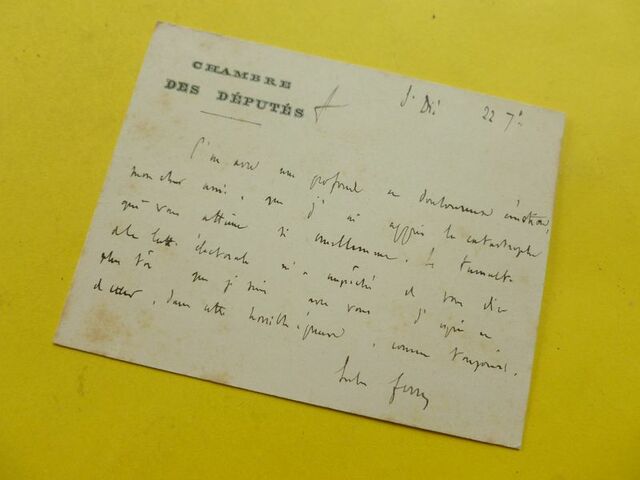 CHAMBRE
DES DÉPUTÉS
St Dié 22 7bre
C'est avec une profonde et douloureuse émotion,
mon cher ami, que j'ai appris la catastrophe
qui vous atteint si cruellement. Le tumulte
de la lutte électorale m'a empêché de vous dire
plus tôt que je suis avec vous
de cœur, dans cette horrible épreuve, comme toujours.
Jules Ferry